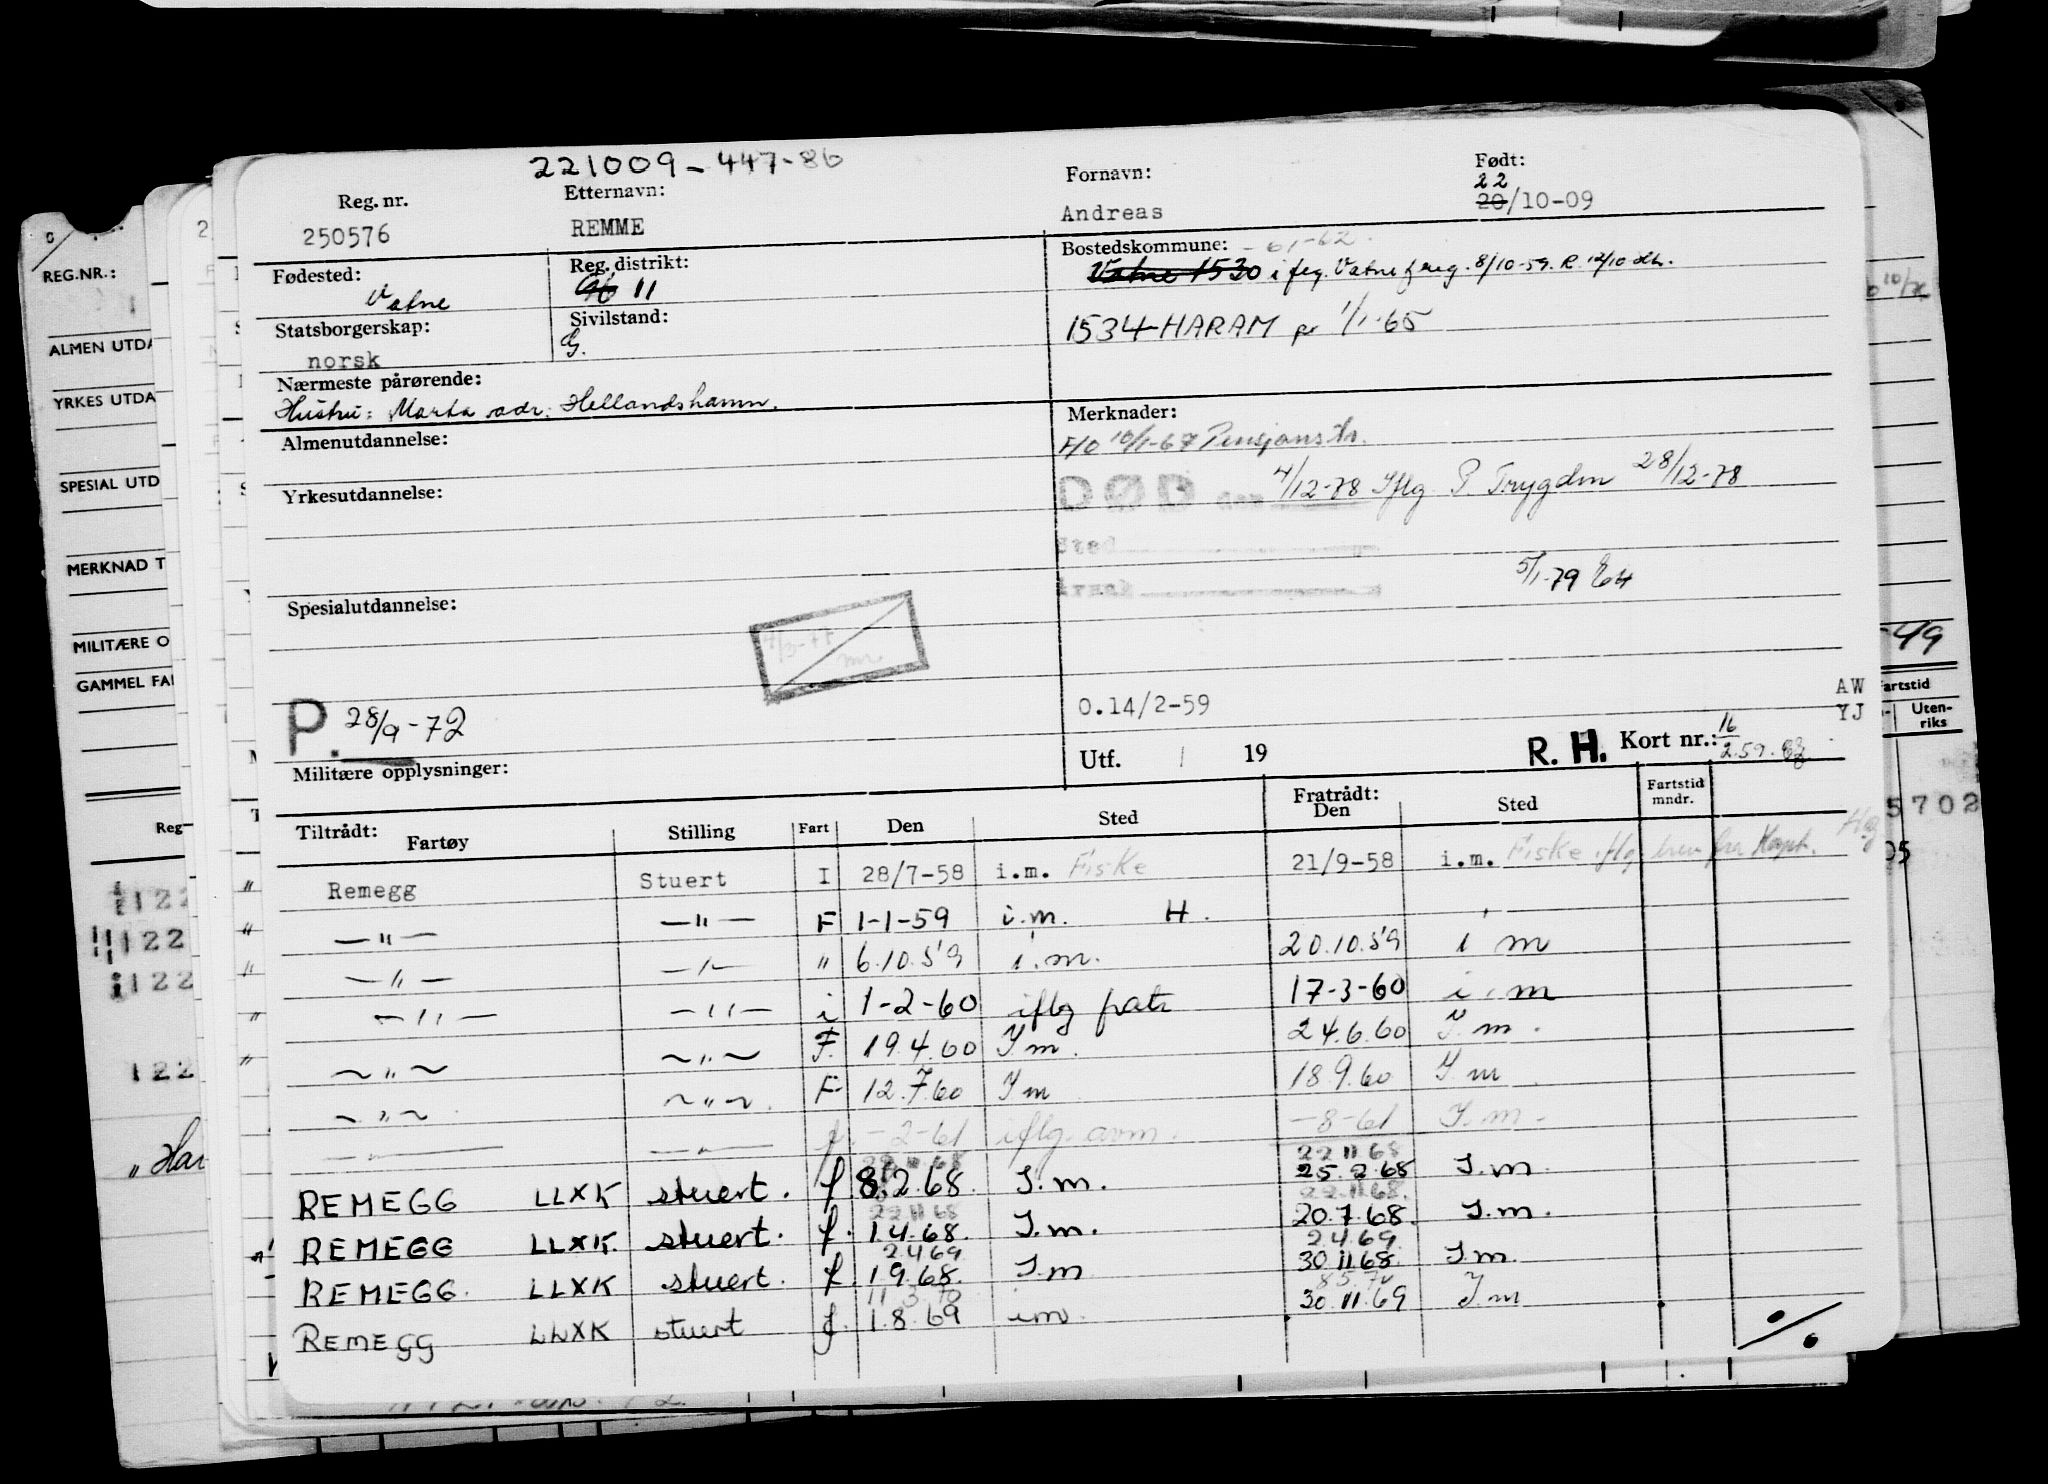 221009-447-86
Reg. nr. Etternavn: Fornavn: Født:
22
250576 REMME Andreas 20/10-09
Fødested: Reg. distrikt: Bostedskommune: -61-62.
Vatne 11 Vatne 1530 i flg. Vatne f.reg. 8/10-59. R. 12/10
Statsborgerskap: Sivilstand: 1534 HARAM pr 1/1-65
norsk G.
Nærmeste pårørende:
Hustru: Marta adr. Hellandshamn.
Almenutdannelse: Merknader:
F/O 10/1-67 Pensjonstr.
Yrkesutdannelse: DØD den 4/12-78 Iflg P. Trygden 28/12-78
Sted
Årsak 5/1-79
Spesialutdannelse:
P. 28/9-72
O.14/2-59
AW
YJ
Utf. / 19 R. H. Kort nr.: 16/2.59.
Militære opplysninger:
Tiltrådt: Fratrådt: Fartstid mndr.
Fartøy Stilling Fart Den Sted Den Sted
Remegg Stuert I 28/7-58 i.m. Fiske 21/9-58 i.m. Fiske iflg. brev fra Kapt.
" — " — — " — F 1-1-59 i.m. H.
" — " — — " — " 6.10.59 i.m. 20.10.59 i m
" — " — — " — i 1-2-60 iflg fratr 17-3-60 i.m
" — " — — " — F. 19.4.60 I m. 24.6.60 I.m.
— " — — " — F 12.7.60 I m 18.9.60 I m
— " — — " — f. -2-61 iflg. avm. -8-61 I.m.
22 11 68 22 11 68
REMEGG LLXK stuert. f 8.2.68. I.m. 25.2.68 I.m.
22 11 68 22.11.68.
REMEGG LLXK. stuert. f. 1.4.68. I.m. 20.7.68. I.m.
2469 2.4.69
REMEGG. LLXK stuert. f. 1.9.68. I.m 30 11 68. I.m
11 3 70 8 5.70
REMEGG LLXK stuert f. 1.8.69 im. 30.11.69 I.m
%
REG.NR.:
ALMEN UTDA
YRKES UTDA
SPESIAL UTD
MERKNAD T
MILITÆRE O
GAMMEL FA
Reg
122
122
122
122
" Har
-49
Fartstid
Uten-
riks
5702
05